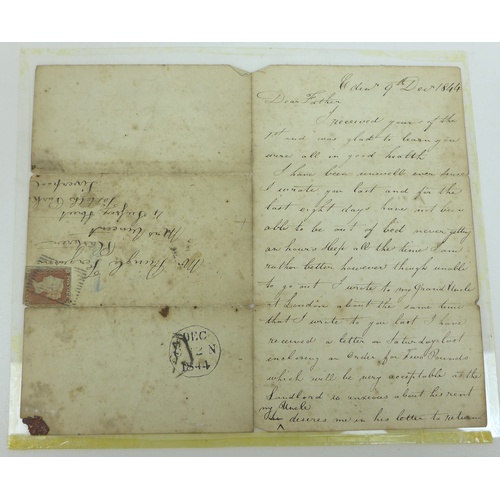 Edinr 9th Decr 1844
Dear Father
I received yours of the
1st and was glad to learn you
were all in good health
I have been unwell ever since
I wrote you last and for the
last eight days have not been
able to be out of bed never getting
an hours sleep all the time I am
rather better however though unable
to go out I wrote to my Grand Uncle
at London about the same time
that I wrote to you last I have
received a letter on Saturday last
inclosing an Order for Two Pounds
which will be very acceptable as the
Landlord is anxious about his rent
my Uncle
desires me in his letter to return
Mr Pringle
Mrs
Street
Liverpool
DEC
1844